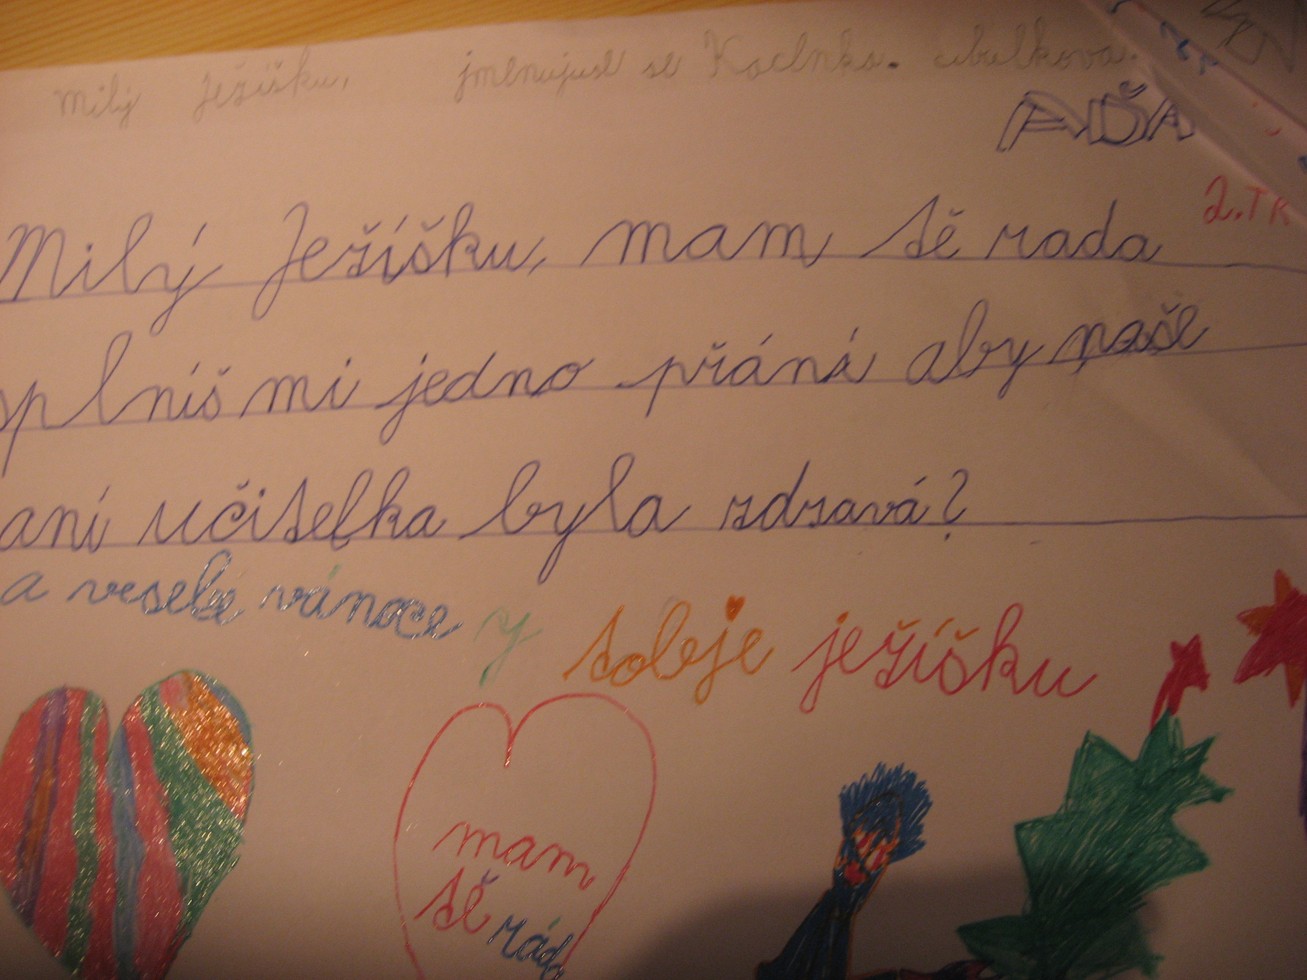 Milý Ježíšku, jmenujuse se
AĎA
2.TR
Milý Ježíšku, mam tě rada
splníš mi jedno přání aby naše
aní učitelka byla zdravá?
a veselé vánoce y tobje ježíšku
mam
tě
ráda